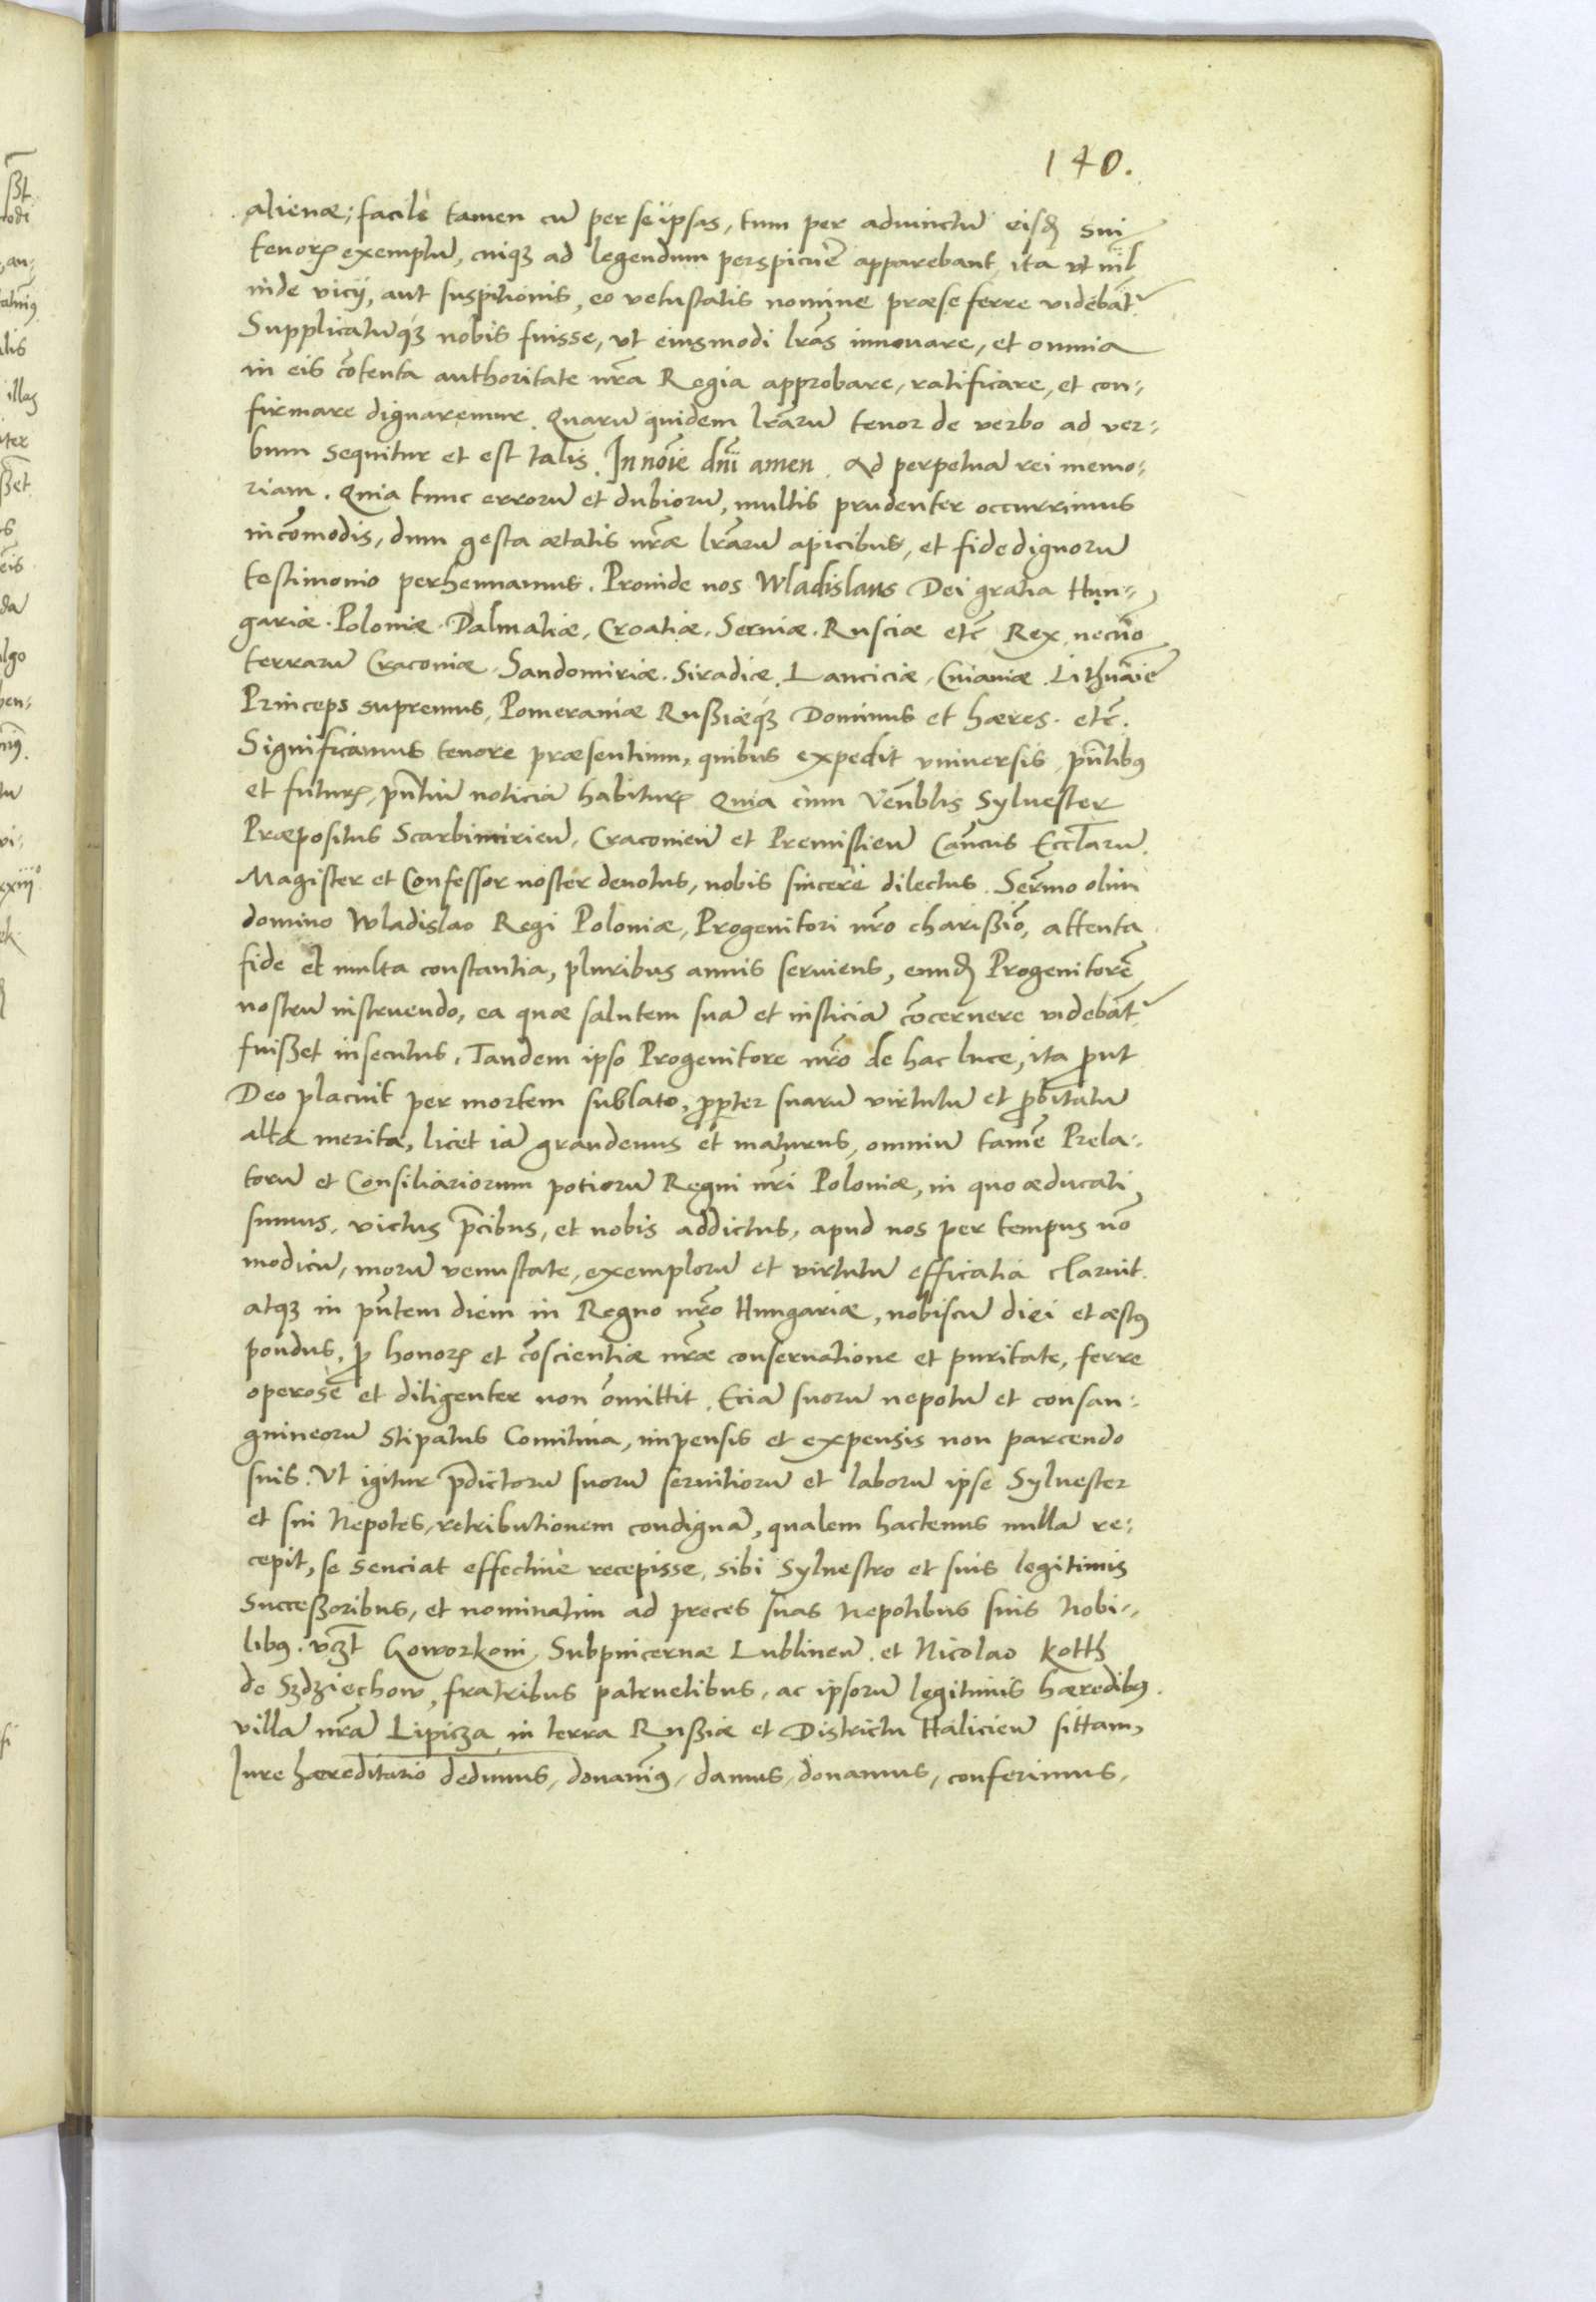 140.
alienæ; facilè tamen cū per seipsas, tum per adiunctū eisd. sui
tenorꝭ exemplū, cuiqꝫ ad legendum perspicuē apparebant, ita vt nil
inde vicij, aut suspitionis, eo vetustatis nomine præse ferre videbāt.
Supplicatūqꝫ nobis fuisse, vt eiusmodi lr̃as innouare, et omnia
in eis cōtenta authoritate nr̃a Regia approbare, ratificare, et con-
firmare dignaremur. Quarū quidem lr̃arū tenor de verbo ad ver-
bum sequitur et est talis. In noīe dn̄i amen. Ad perpetuā rei memo-
riam. Quia tunc errorū et dubiorū, multis prudenter occurrimus
incōmodis, dum gesta ætatis nr̃æ lr̃arū apicibus, et fidedignorū
testimonio perhennamus. Proinde nos Wladislaus Dei gratia Hun-
gariæ. Poloniæ. Dalmatiæ. Croatiæ. Seruiæ. Rusciæ etc̄ Rex, necnō
terrarū Cracouiæ. Sandomiriæ. Siradiæ. Lanciciæ, Cuiauiæ. Lithuāiē
Princeps supremus, Pomeraniæ Rußiæqꝫ Dominus et hæres. etc̄.
Significamus tenore præsentium, quibus expedit vniuersis, pn̄tibꝰ
et futurꝭ, pn̄tiū noticiā habiturꝭ. Quia cum Venblīs Sylvester
Præpositus Scarbimirieñ, Cracouieñ et Premislieñ Cancūs Eccl̄arū.
Magister et Confessor noster deuotus, nobis sincerè dilectus. Serm̄o olim
domino Wladislao Regi Poloniæ, Progenitori nr̃o charißiō, attenta
fide et multa constantia, pluribus annis seruiens, eund. Progenitorē
nostrū instruendo, ea quæ salutem suā et iusticiā cōcernere videbāt
fuißet insecutus. Tandem ipso Progenitore nr̃o de hac luce, ita ꝓut
Deo placuit per mortem sublato, ꝓpter suarū virtutū et ꝓbitatū
alta merita, licet iā grandeuus et maturus, omniū tamē Prela-
torū et Consiliariorum potiorū Regni nr̃i Poloniæ, in quo æducati
sumus, victus p̄cibus, et nobis addictus, apud nos per tempus nō
modicū, morū venustate, exemplorū et virtutū efficatia claruit.
atqꝫ in pn̄tem diem in Regno nr̃o Hungariæ, nobiscū diei et æstꝰ
pondus, ꝓ honorꝭ et cōscientiæ nr̃æ conseruatione et puritate, ferre
operosē et diligenter non omittit. Eciā suorū nepotū et consan-
guineorū stipatus Comitiua, impensis et expensis non parcendo
suis. Vt igitur p̄dictorū suorū seruitiorū et laborū ipse Syluester
et sui Nepotes, retributionem condignā, qualem hactenus nullā re-
cepit, se senciat effectiuè recepisse, sibi Syluestro et suis legitimis
Succeßoribus, et nominatim ad preces suas Nepotibus suis Nobi-
libꝰ. vꝫt Goworkoni, Subpincernæ Lublineñ. et Nicolao Kotth
de Szdziechow, fratribus patruelibus, ac ipsorū legitimis hæredibꝰ.
villā nr̃ā Lipicza in terra Rußiæ et Districtu Halicieñ sittam,
Iure hæreditario dedimus, donauimꝰ, damus, donamus, conferimus,